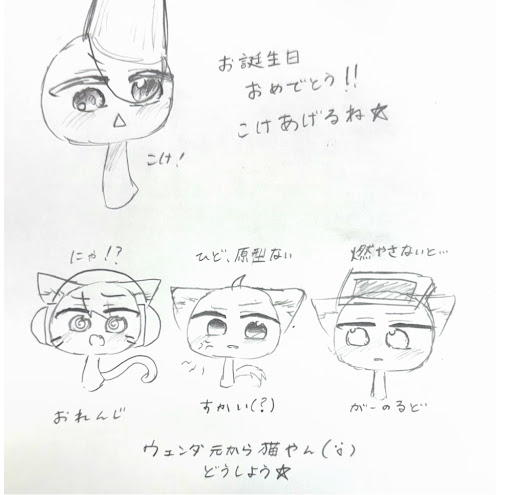 お誕生日
おめでとう!!
こけあげるね☆
こけ!
にゃ!?
ひど、原型ない
燃やさないと…
おれんじ
すかい(?)
がーのるど
ウェンダ元から猫やん(ӧ)
どうしよう☆